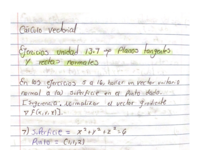 Cálculo vectorial
Ejercicios unidad 13.7 → Planos tangentes
y rectas normales
En los ejercicios 7 a 16, hallar un vector unitario
normal a la superficie en el punto dado.
[Sugerencia: normalizar el vector gradiente
∇F(x,y,z)].
7) Superficie = x²+y²+z²=6
Punto = (1,1,2)